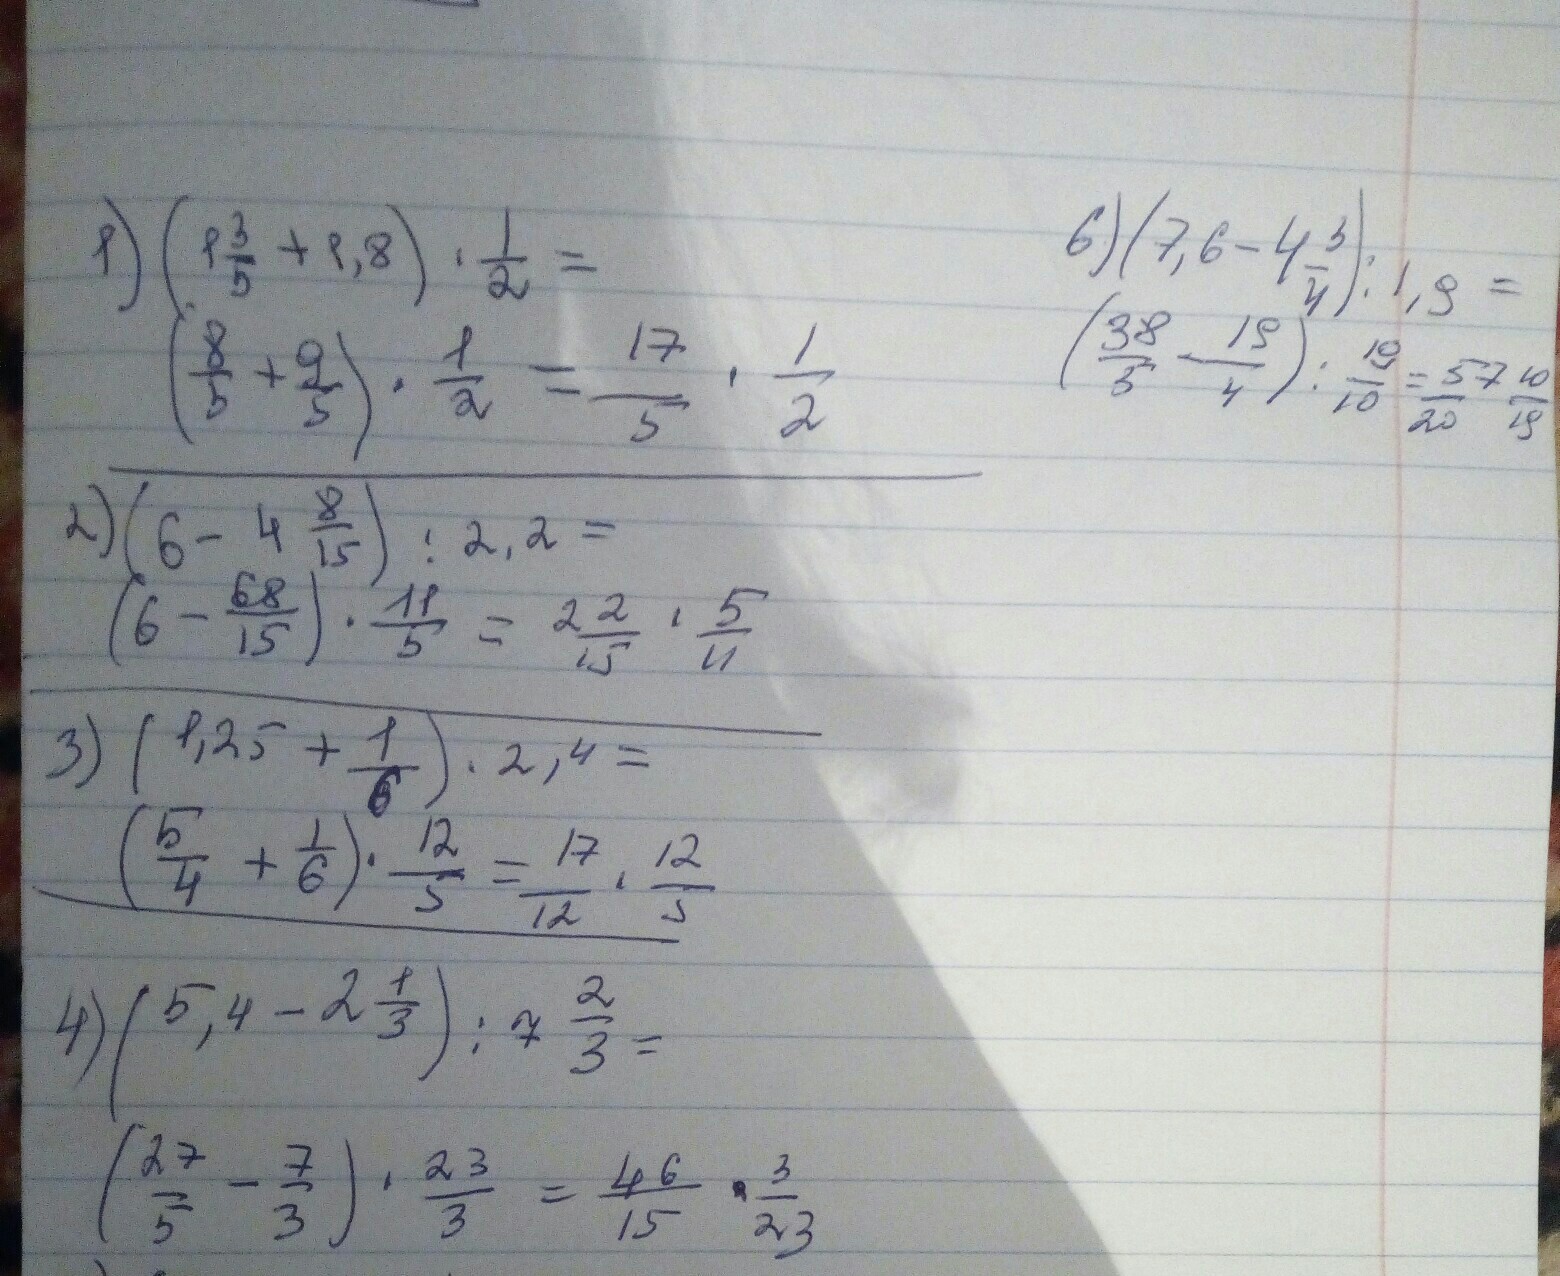 1) (1 3/5 + 1,8) · 1/2 =
(8/5 + 9/5) · 1/2 = 17/5 · 1/2
2) (6 - 4 8/15) : 2,2 =
(6 - 68/15) · 11/5 = 22/15 · 5/11
3) (1,25 + 1/6) · 2,4 =
(5/4 + 1/6) · 12/5 = 17/12 · 12/5
4) (5,4 - 2 1/3) : 7 2/3 =
(27/5 - 7/3) · 23/3 = 46/15 · 3/23
6) (7,6 - 4 3/4) : 1,9 =
(38/5 - 19/4) : 19/10 = 57/20 10/19